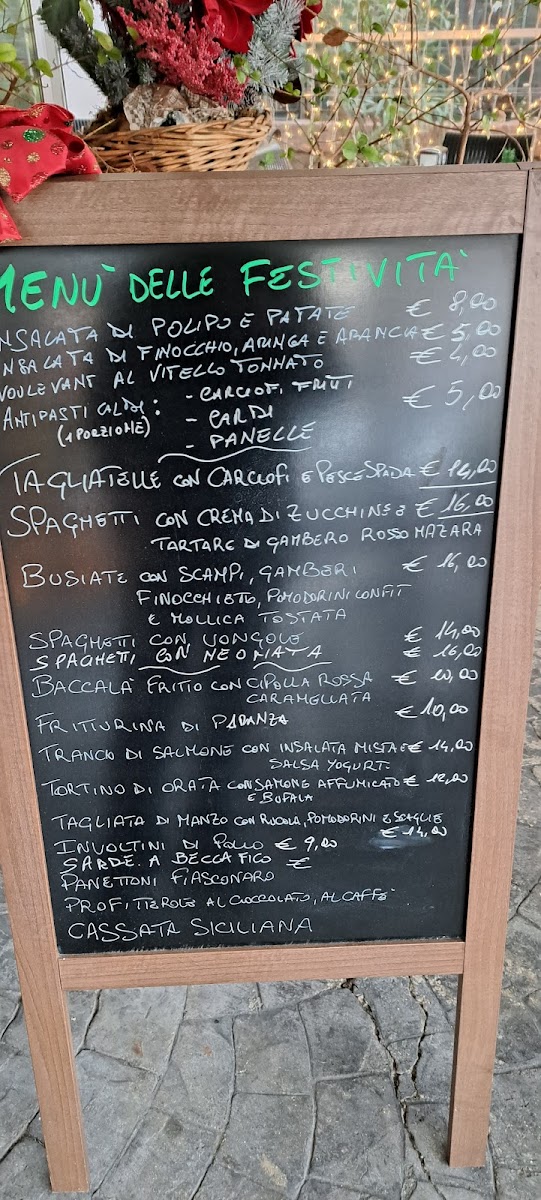 MENÙ DELLE FESTIVITÀ
INSALATA DI POLIPO E PATATE € 8,00
INSALATA DI FINOCCHIO, ARINGA E ARANCIA € 5,00
VOULEVANT AL VITELLO TONNATO € 4,00
ANTIPASTI CALDI: - CARCIOFI FRITTI € 5,00
(1 PORZIONE) - CARDI
- PANELLE
TAGLIATELLE CON CARCIOFI E PESCE SPADA € 14,00
SPAGHETTI CON CREMA DI ZUCCHINE E € 16,00
TARTARE DI GAMBERO ROSSO MAZARA
BUSIATE CON SCAMPI, GAMBERI € 16,00
FINOCCHIETTO, POMODORINI CONFIT
E MOLLICA TOSTATA
SPAGHETTI CON VONGOLE € 14,00
SPAGHETTI CON NEONATA € 16,00
BACCALÀ FRITTO CON CIPOLLA ROSSA € 10,00
CARAMELLATA
FRITTURINA DI PARANZA € 10,00
TRANCIO DI SALMONE CON INSALATA MISTA E € 14,00
SALSA YOGURT.
TORTINO DI ORATA CON SAMONE AFFUMICATO € 12,00
E BUFALA
TAGLIATA DI MANZO CON RUCOLA, POMODORINI E SCAGLIE
€ 14,00
INVOLTINI DI POLLO € 9,00
SARDE. A BECCAFICO €
PANETTONI FIASCONARO
PROFITTEROLE AL CIOCCOLATO, AL CAFFÈ
CASSATA SICILIANA